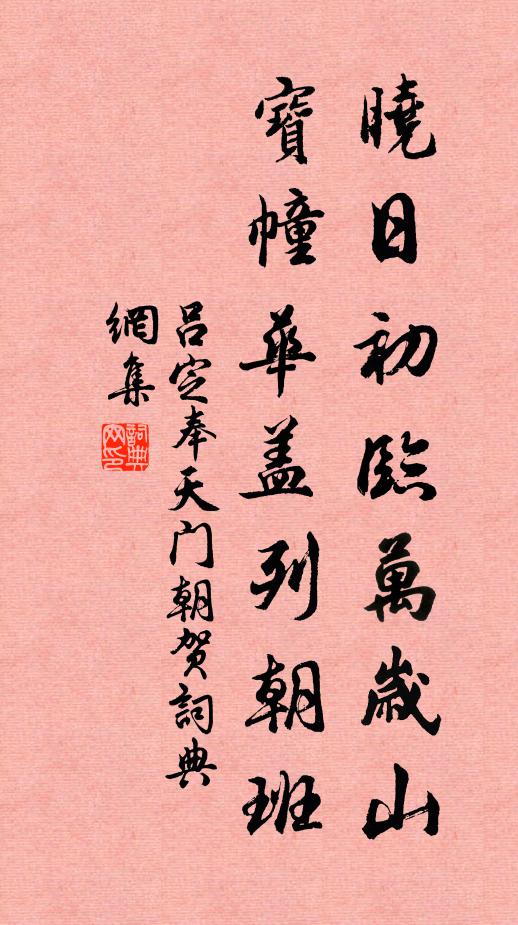 曉日初臨萬歲山
寶幢華蓋列朝班
呂定奉天门朝贺詞典
網集
詞典
网印